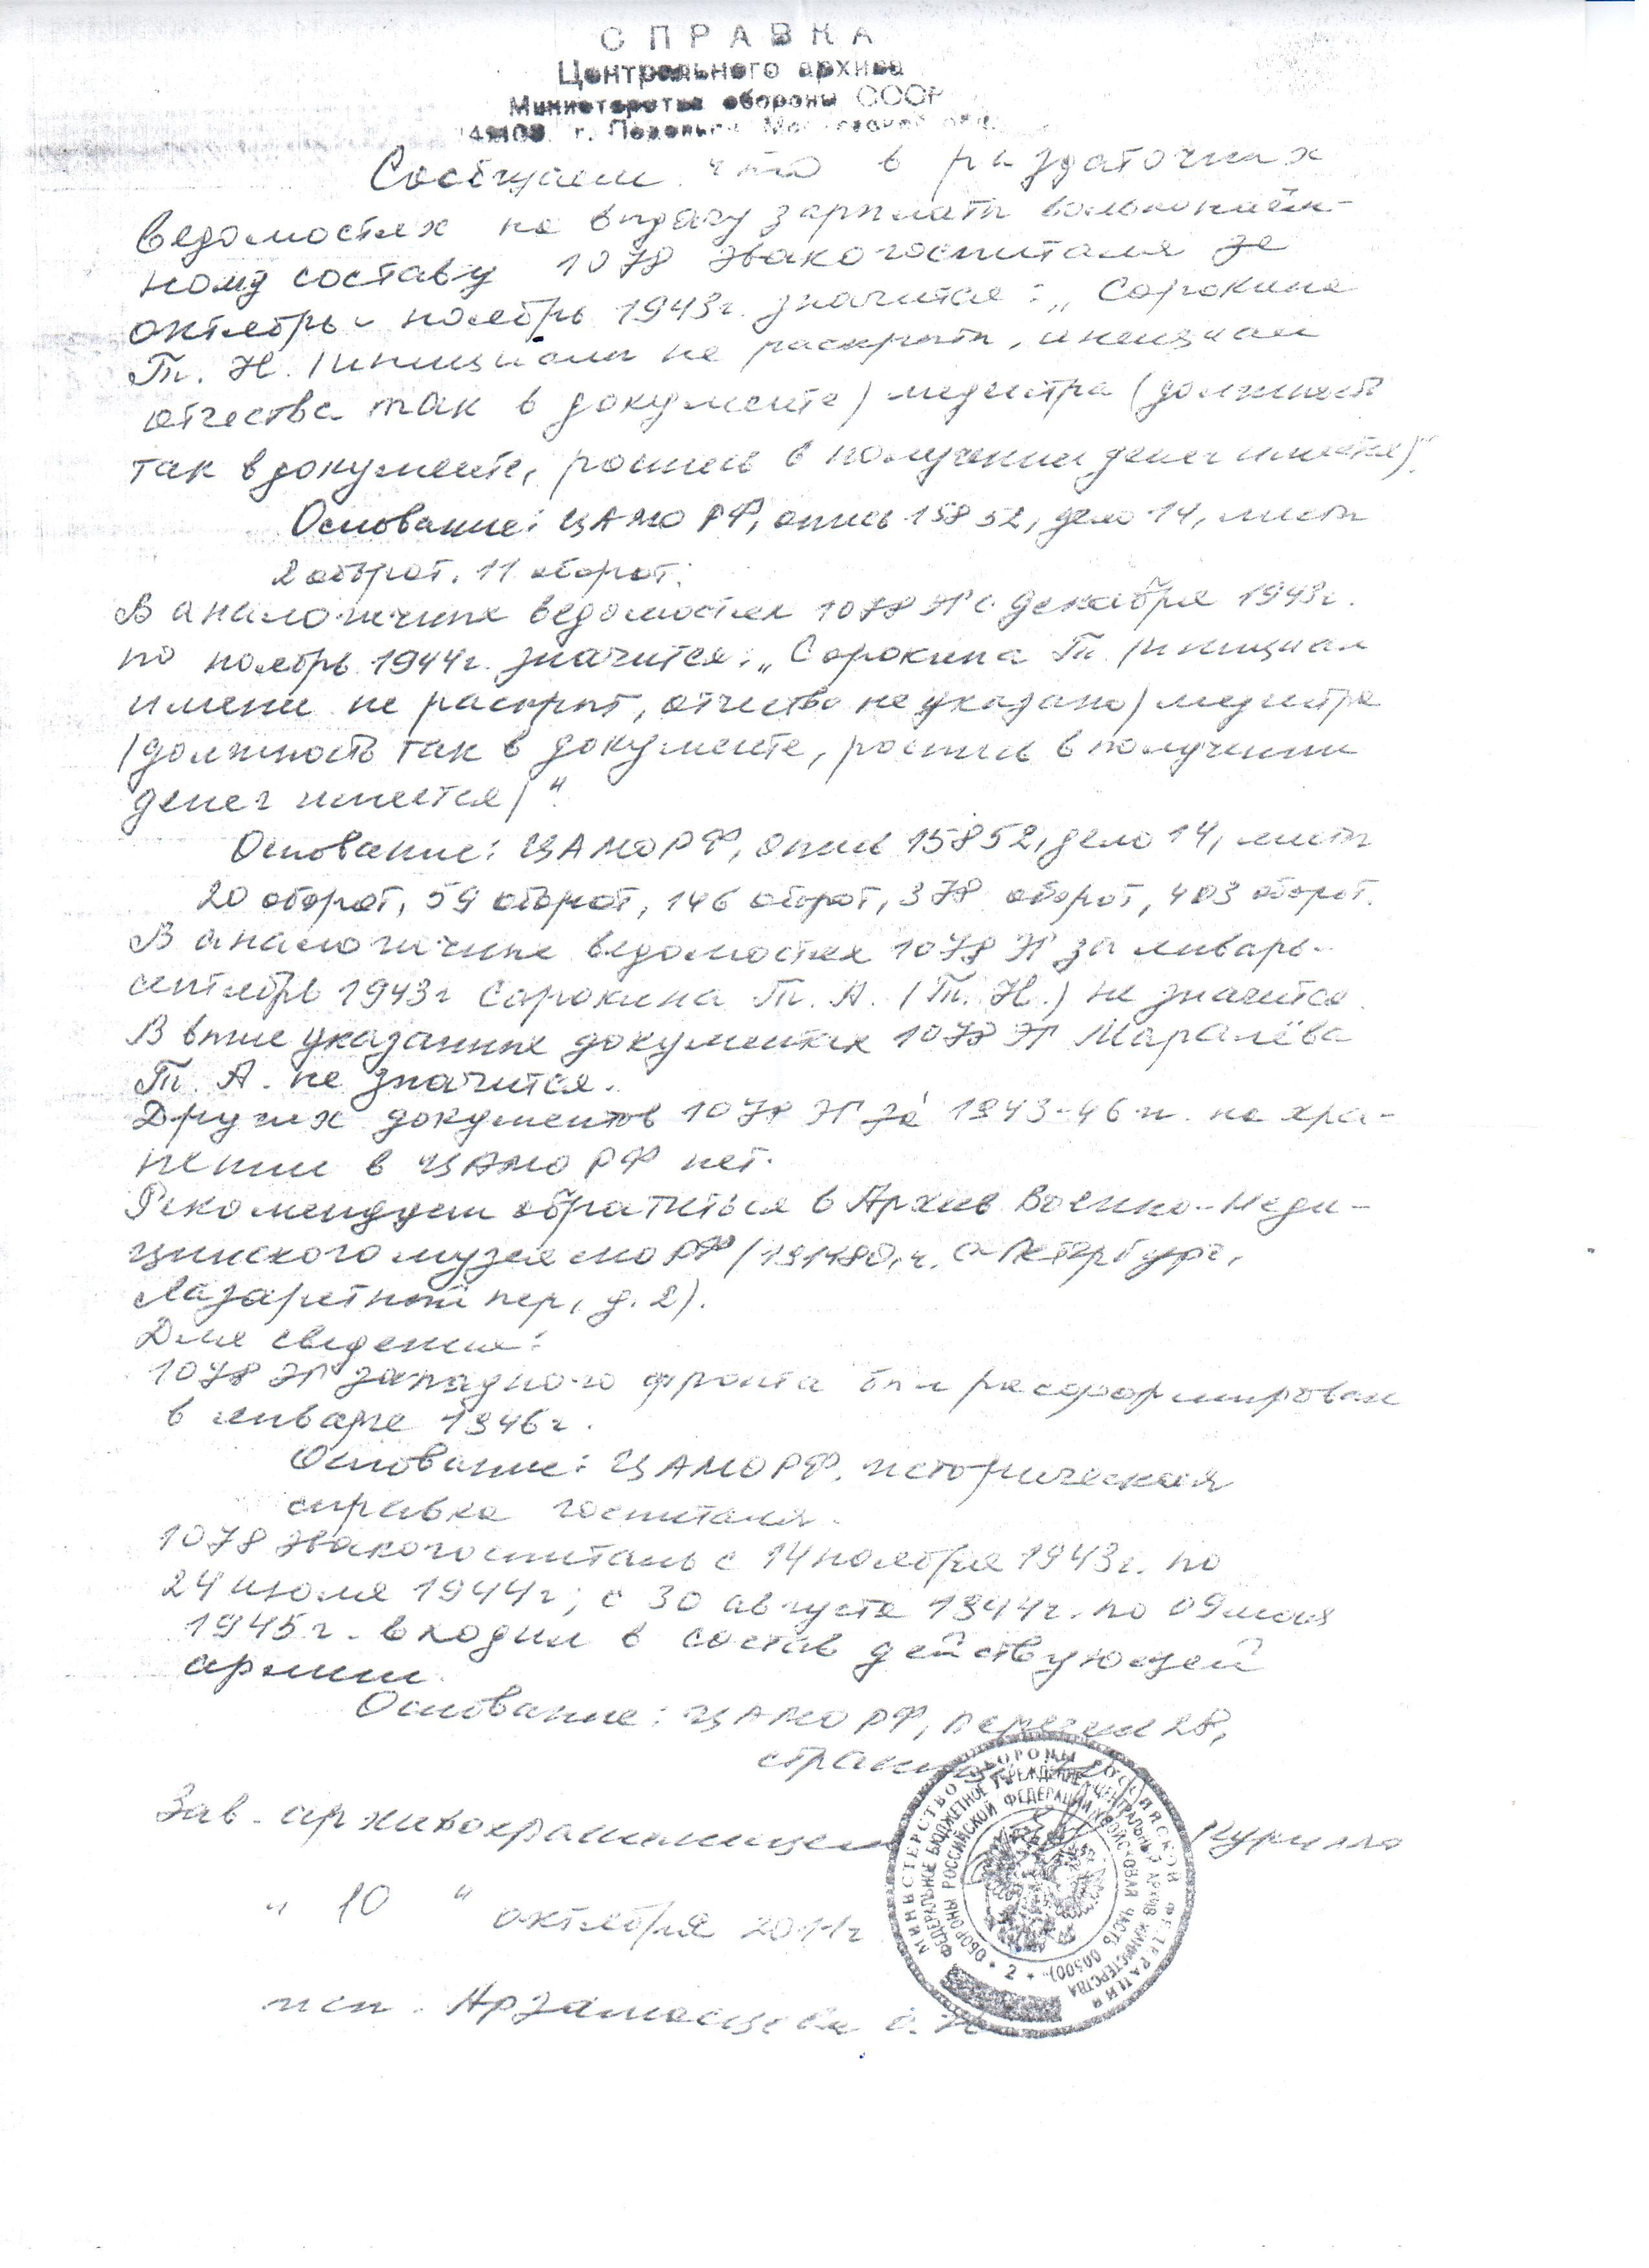 СПРАВКА
Центрального архива
Министерства обороны СССР
г. Подольск Московской
Сообщаем, что в раздаточных
ведомостях на выдачу зарплаты вольнонаём-
ному составу 1078 эвакогоспиталя за
октябрь - ноябрь 1943г. значится: „Сорокина
Т. Н. (инициалы не раскрыты, инициал
отчества так в документе) медсестра (должность
так в документе, роспись в получении денег имеется)“.
Основание: ЦАМО РФ, опись 15852, дело 14, листы
2 оборот, 11 оборот.
В аналогичных ведомостях 1078 ЭГ с декабря 1943г.
по ноябрь 1944г. значится: „Сорокина Т. (инициал
имени не раскрыт, отчество не указано) медсестра
(должность так в документе, роспись в получении
денег имеется)“.
Основание: ЦАМО РФ, опись 15852, дело 14, листы
20 оборот, 59 оборот, 146 оборот, 378 оборот, 403 оборот.
В аналогичных ведомостях 1078 ЭГ за январь-
сентябрь 1943г Сорокина Т. А. (Т. Н.) не значится.
В выше указанных документах 1078 ЭГ Маралёва
Т. А. не значится.
Других документов 1078 ЭГ за 1943-46 гг. на хра-
нении в ЦАМО РФ нет.
Рекомендуем обратиться в Архив Военно-Меди-
цинского музея МО РФ (191180, г. С-Петербург,
Лазаретный пер, д. 2).
Для сведения:
1078 ЭГ Западного фронта был расформирован
в январе 1946г.
Основание: ЦАМО РФ, историческая
справка госпиталя.
1078 эвакогоспиталь с 14 ноября 1943г. по
24 июля 1944г; с 30 августа 1944г. по 09 мая
1945г. входил в состав действующей
армии.
Основание: ЦАМО РФ, перечень 28,
страница
Зав. архивохранилищем
"10" октября 2011г
исп. Арзамасцева
МИНИСТЕРСТВО ОБОРОНЫ РОССИЙСКОЙ ФЕДЕРАЦИИ
ФЕДЕРАЛЬНОЕ БЮДЖЕТНОЕ УЧРЕЖДЕНИЕ ЦЕНТРАЛЬНЫЙ АРХИВ МИНИСТЕРСТВА
ОБОРОНЫ РОССИЙСКОЙ ФЕДЕРАЦИИ (ВОЙСКОВАЯ ЧАСТЬ 00500)
* 2 *